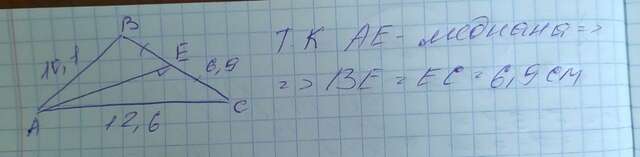 B
10,1
E
6,9
A
12,6
C
Т.К АЕ - медиана =>
=> ВЕ = ЕС = 6,9 см